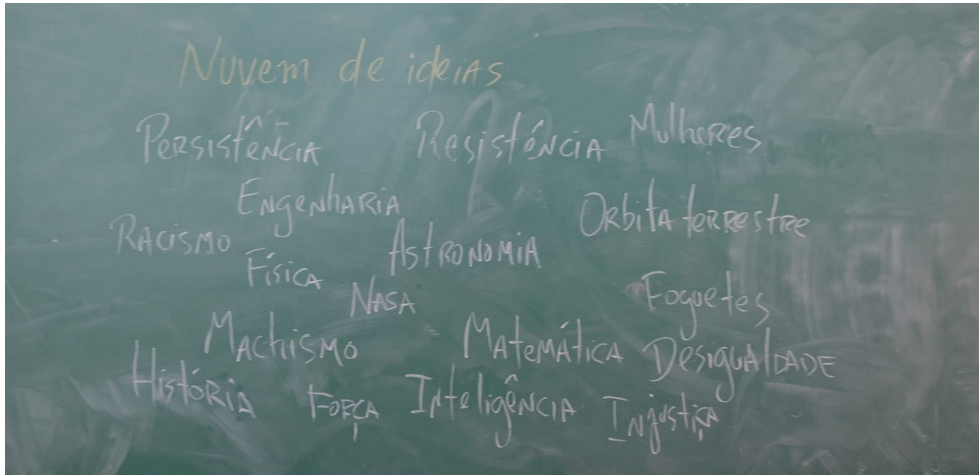 Nuvem de ideias
Persistência Resistência Mulheres
Engenharia Orbita terrestre
Racismo Astronomia
Física Nasa Foguetes
Machismo Matemática Desigualdade
História Força Inteligência Injustiça